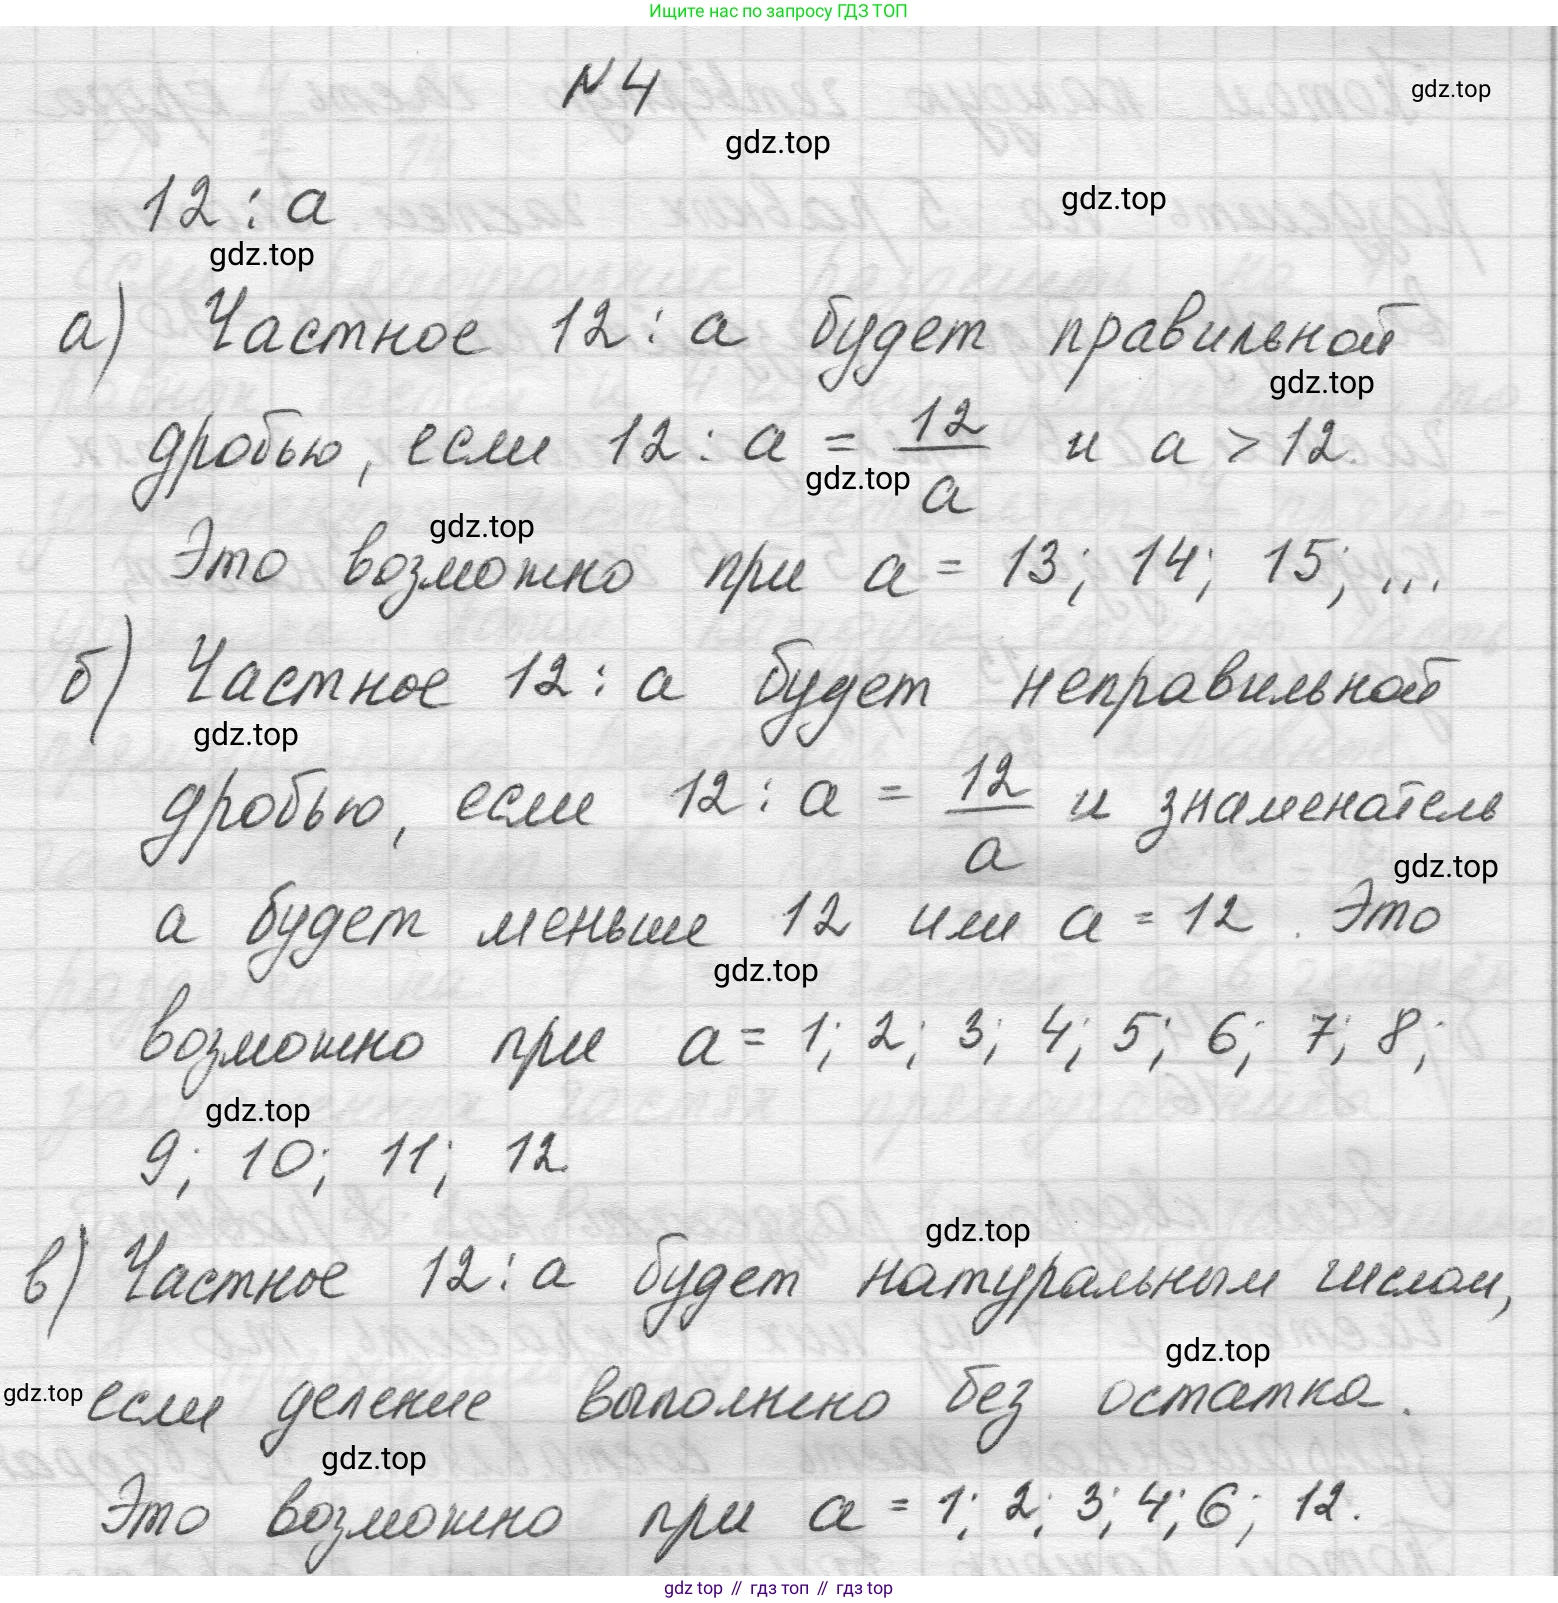 Ищите нас по запросу ГДЗ ТОП
N 4
gdz.top
gdz.top
12 : a
gdz.top
gdz.top
а) Частное 12 : a будет правильной
gdz.top
дробью, если 12 : a = 12/a и a > 12.
gdz.top
gdz.top
Это возможно при a = 13; 14; 15; ...
б) Частное 12 : a будет неправильной
gdz.top
дробью, если 12 : a = 12/a и знаменатель
gdz.top
a будет меньше 12 или a = 12. Это
gdz.top
возможно при a = 1; 2; 3; 4; 5; 6; 7; 8;
gdz.top
9; 10; 11; 12.
gdz.top
в) Частное 12 : a будет натуральным числом,
gdz.top
gdz.top если деление выполнено без остатка.
gdz.top
Это возможно при a = 1; 2; 3; 4; 6; 12.
gdz top // гдз топ // гдз top